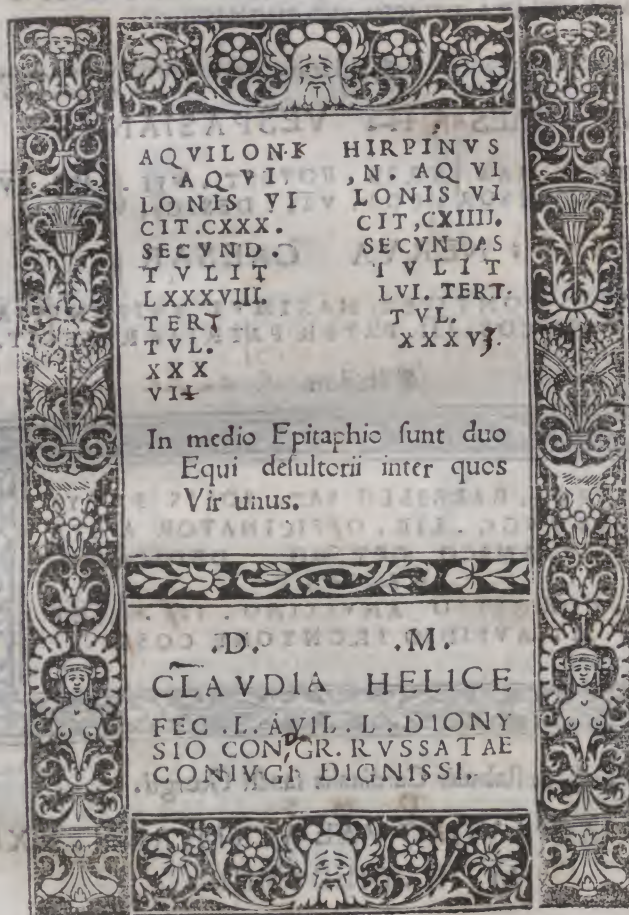 AQVILON·K
AQVI
LONIS VI
CIT.CXXX.
SECVND.
TVLIT
LXXXVIII.
TERT
TVL.
XXX
VII
HIRPINVS
,N. AQVI
LONIS VI
CIT,CXIIII.
SECVNDAS
TVLIT
LVI. TERT.
TVL.
XXXVJ.
In medio Epitaphio sunt duo
Equi desultorii inter quos
Vir unus.
.D. .M.
CLAVDIA HELICE
FEC .L. AVIL. L. DIONY
SIO CON,GR. RVSSATAE
CONIVGI DIGNISSI.